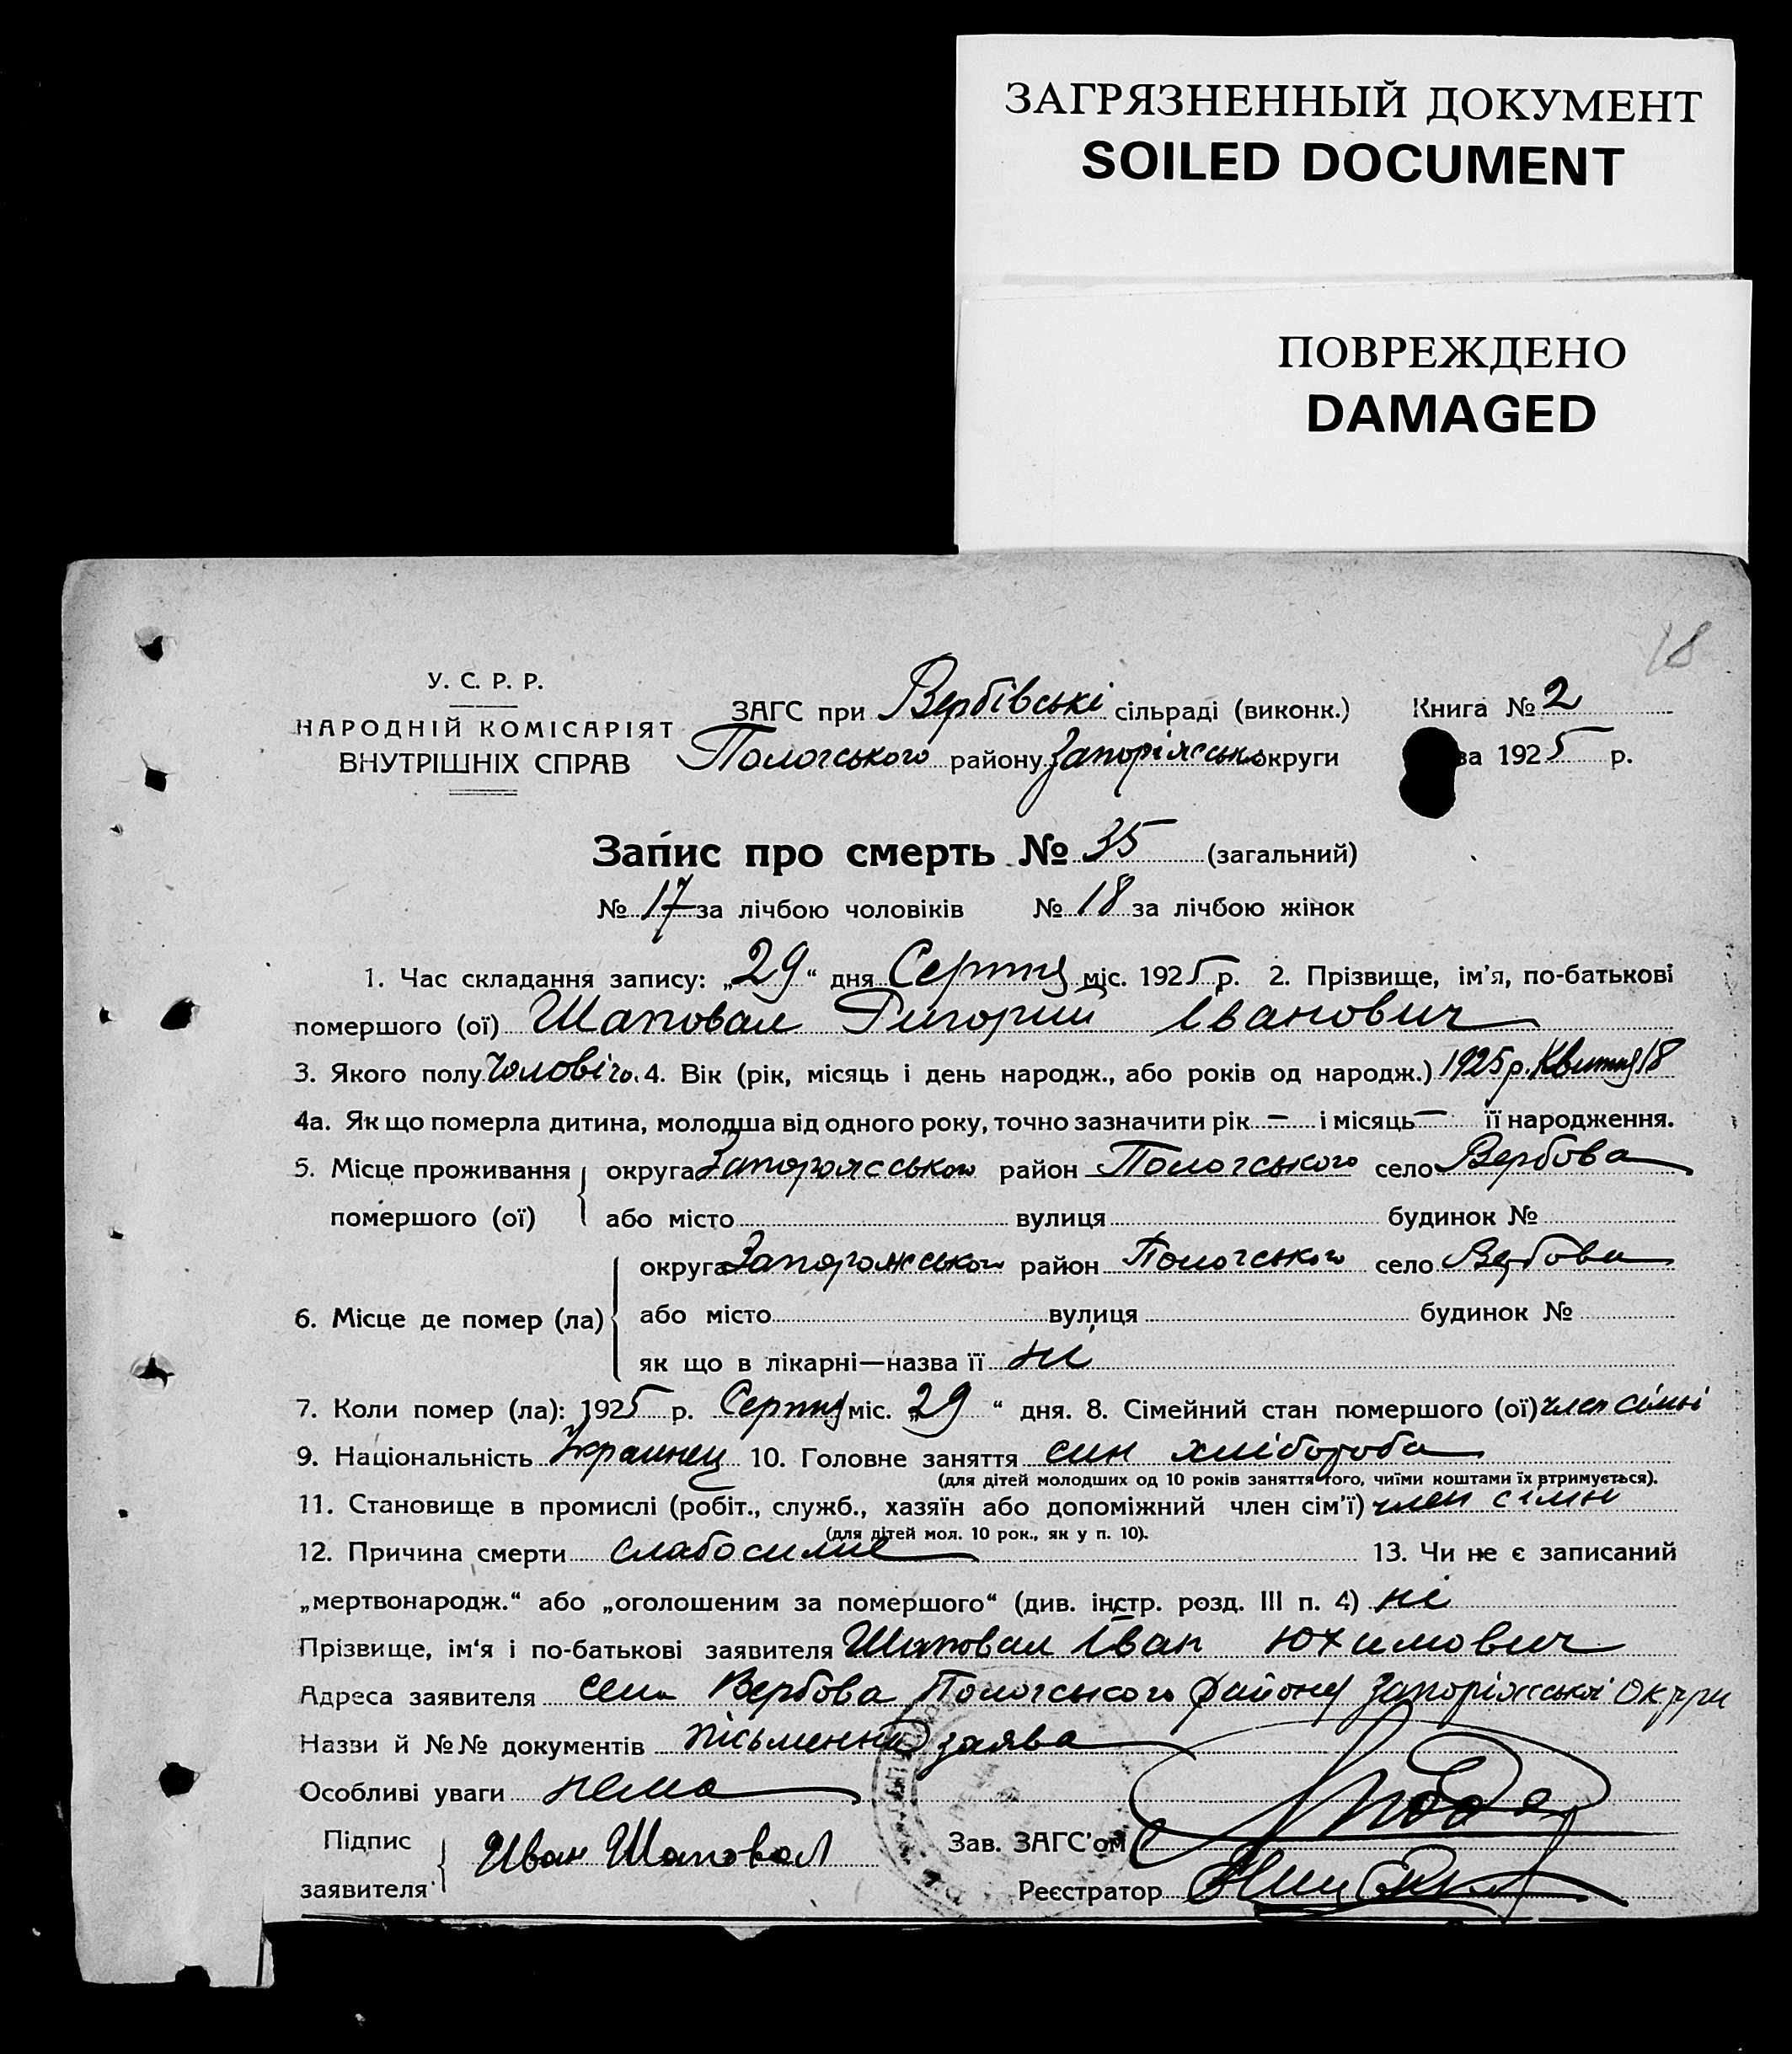 ЗАГРЯЗНЕННЫЙ ДОКУМЕНТ
SOILED DOCUMENT
ПОВРЕЖДЕНО
DAMAGED
18
У. С. Р. Р.
НАРОДНІЙ КОМІСАРІЯТ
ВНУТРІШНІХ СПРАВ
ЗАГС при Вербівські сільраді (виконк.) Книга № 2
Пологського району Запоріжсько округи за 1925 р.
Запис про смерть № 35 (загальний)
№ 17 за лічбою чоловіків № 18 за лічбою жінок
1. Час складання запису: „29“ дня Серпня міс. 1925 р. 2. Прізвище, ім'я, по-батькові
помершого (ої) Шаповал Григорий Іванович
3. Якого полу Чоловічо. 4. Вік (рік, місяць і день народж., або років од народж.) 1925 р. Квитня 18
4а. Як що померла дитина, молодша від одного року, точно зазначити рік — і місяць — її народження.
5. Місце проживання округа Запорожського район Пологського село Вербова
помершого (ої) або місто вулиця будинок №
округа Запорожського район Пологського село Вербова
6. Місце де помер (ла) або місто вулиця будинок №
як що в лікарні—назва її ні
7. Коли помер (ла): 1925 р. Серпня міс. „29“ дня. 8. Сімейний стан помершого (ої) член сімні
9. Національність Украинец 10. Головне заняття син хлібороба
(для дітей молодших од 10 років заняття того, чиїми коштами їх втримується).
11. Становище в промислі (робіт., служб., хазяїн або допоміжний член сім'ї) член сімні
(для дітей мол. 10 рок., як у п. 10).
12. Причина смерти слабосилие 13. Чи не є записаний
„мертвонародж.“ або „оголошеним за помершого“ (див. інстр. розд. III п. 4) ні
Прізвище, ім'я і по-батькові заявителя Шаповал Іван Юхимович
Адреса заявителя село Вербова Пологського району Запоріжської Округи
Назви й №№ документів письменна заява
Особливі уваги нема
Підпис
заявителя Иван Шаповал
Зав. ЗАГС'ом
Реєстратор